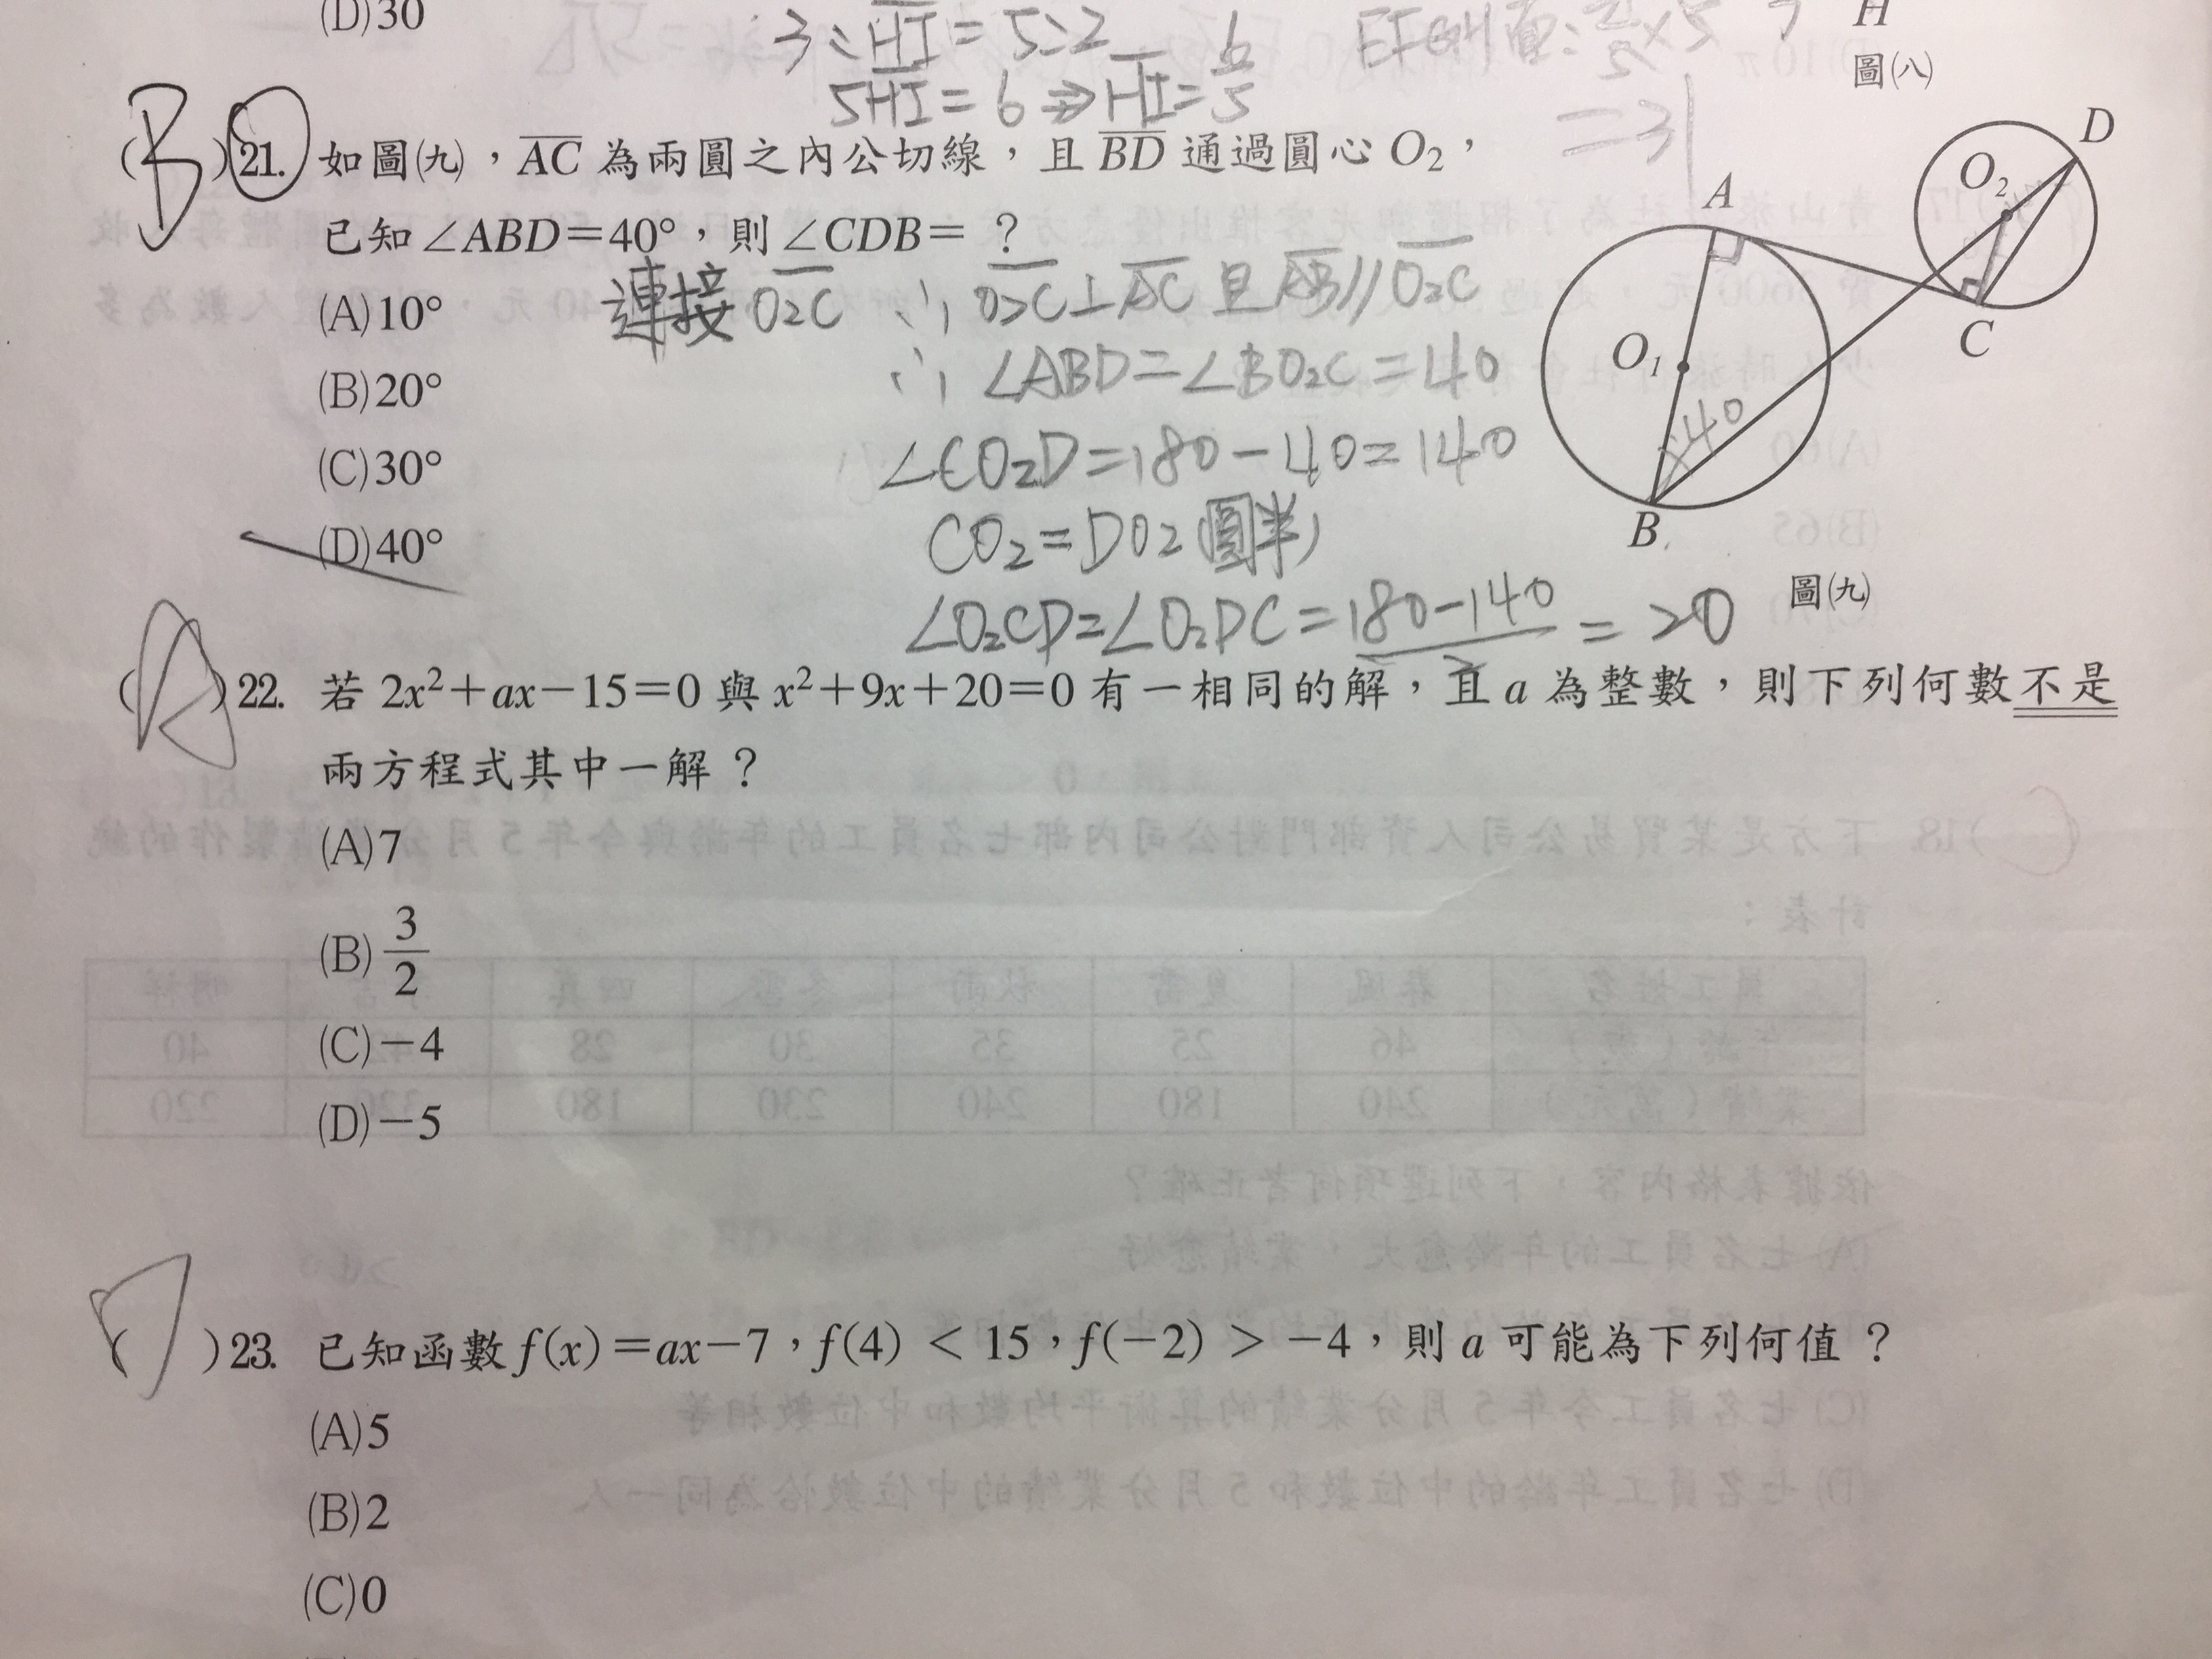 (D)30
3:HI=5:2
5HI=6⇒HI=6/5
=31
H
圖(八)
(B)21. 如圖(九),AC 為兩圓之內公切線,且 BD 通過圓心 O₂,
已知∠ABD=40°,則∠CDB= ?
(A)10°
(B)20°
(C)30°
(D)40°
連接 O₂C ∵ O₂C⊥AC 且 AB//O₂C
∴ ∠ABD=∠BO₂C=40
∠CO₂D=180-40=140
CO₂=DO₂(圓半)
∠O₂CD=∠O₂DC=180-140/2=20
D
O₂
A
C
O₁
40
B
圖(九)
(A)22. 若 2x²+ax-15=0 與 x²+9x+20=0 有一相同的解,且 a 為整數,則下列何數不是
兩方程式其中一解?
(A)7
(B)3/2
(C)-4
(D)-5
( )23. 已知函數 f(x)=ax-7,f(4) < 15,f(-2) > -4,則 a 可能為下列何值?
(A)5
(B)2
(C)0